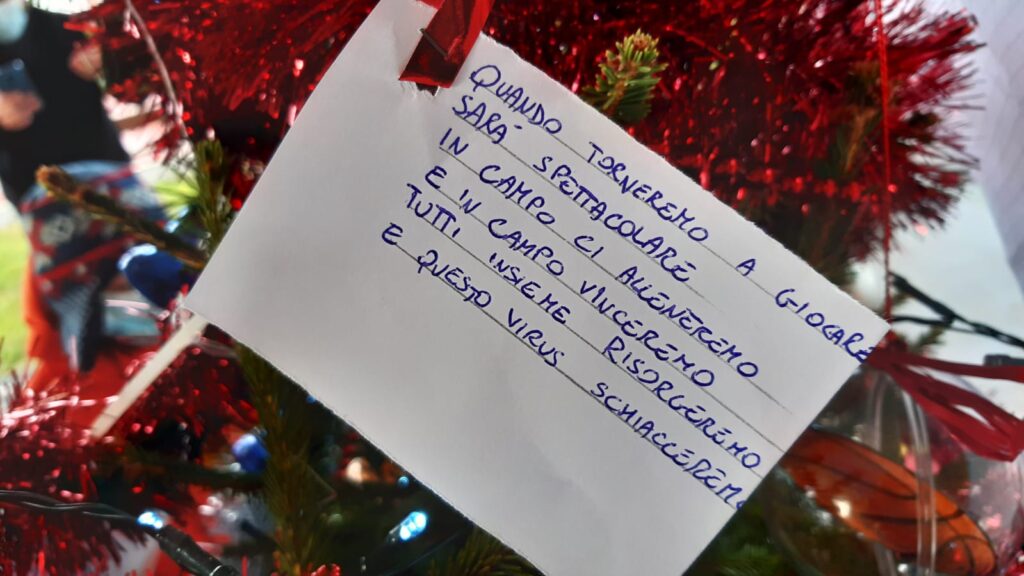 QUANDO TORNEREMO A GIOCARE
SARA' SPETTACOLARE
IN CAMPO CI ALLENEREMO
E IN CAMPO VINCEREMO
TUTTI INSIEME RISORGEREMO
E QUESTO VIRUS SCHIACCEREMO